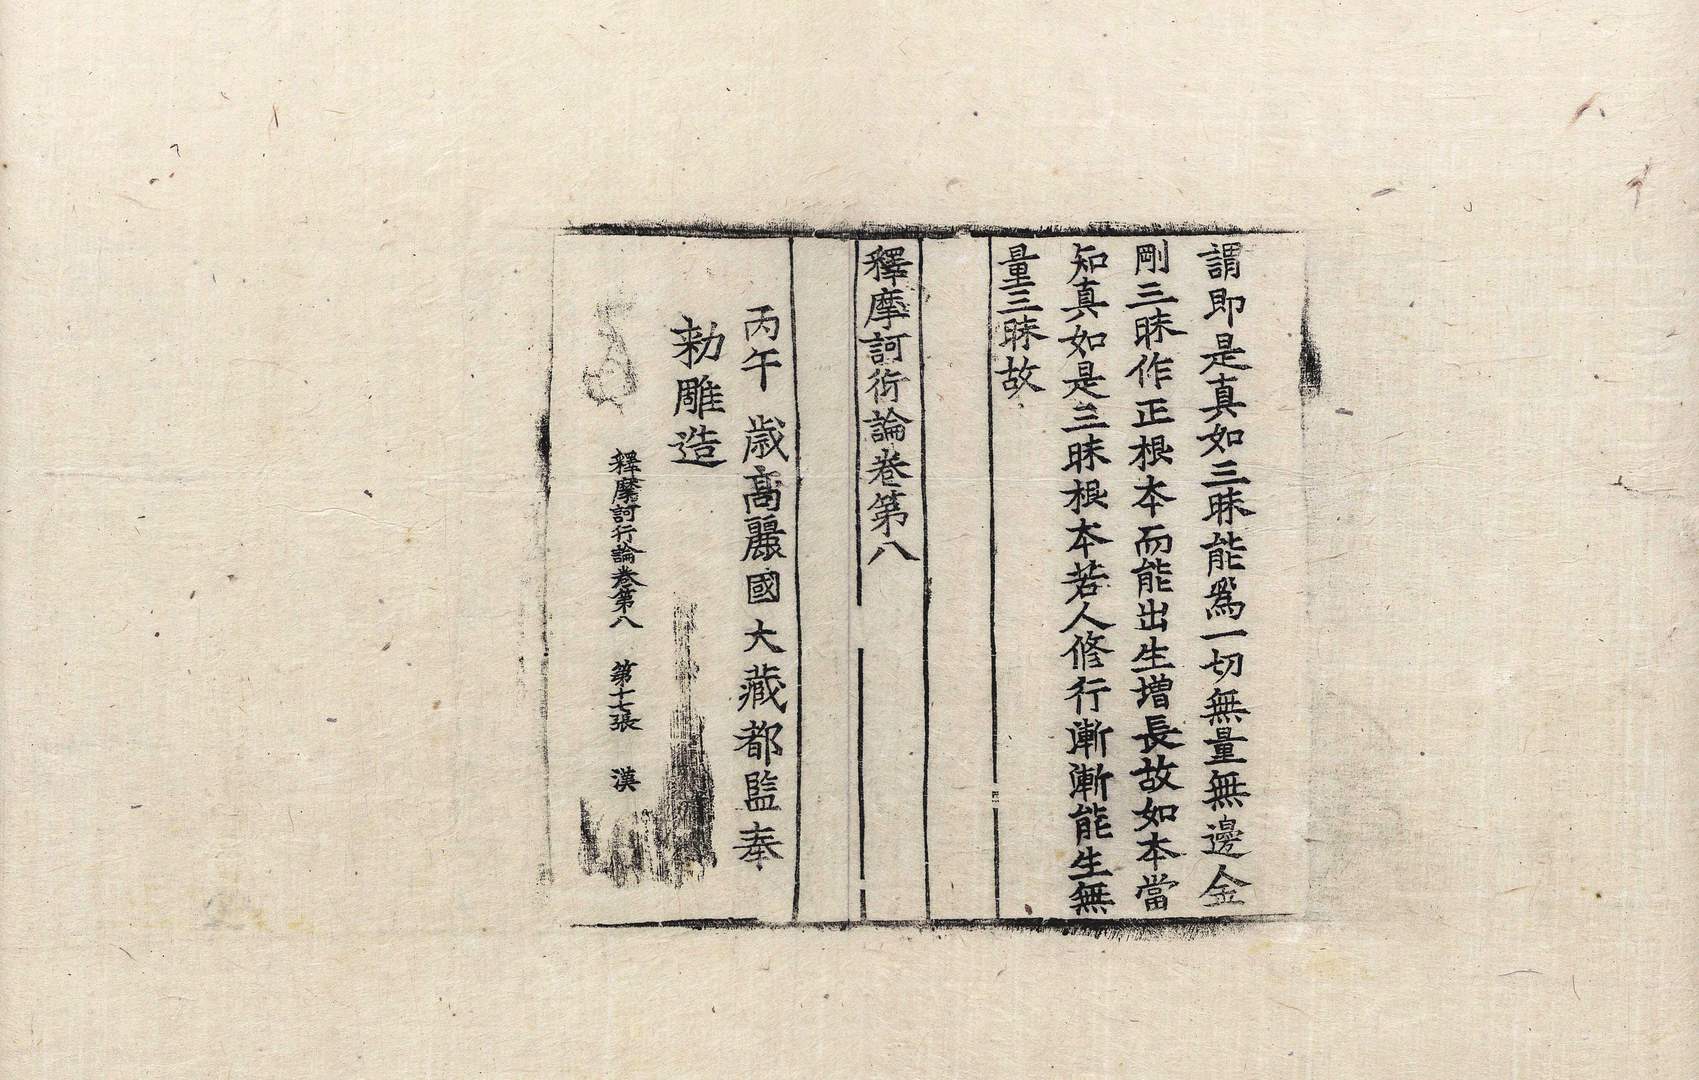 謂即是真如三昧能為一切無量無邊金
剛三昧作正根本而能出生増長故如本當
知真如是三昧根本若人修行漸漸能生無
量三昧故
釋摩訶衍論卷第八
丙午歲高麗國大藏都監奉
勅雕造
釋摩訶行論卷第八 第十七張 漢